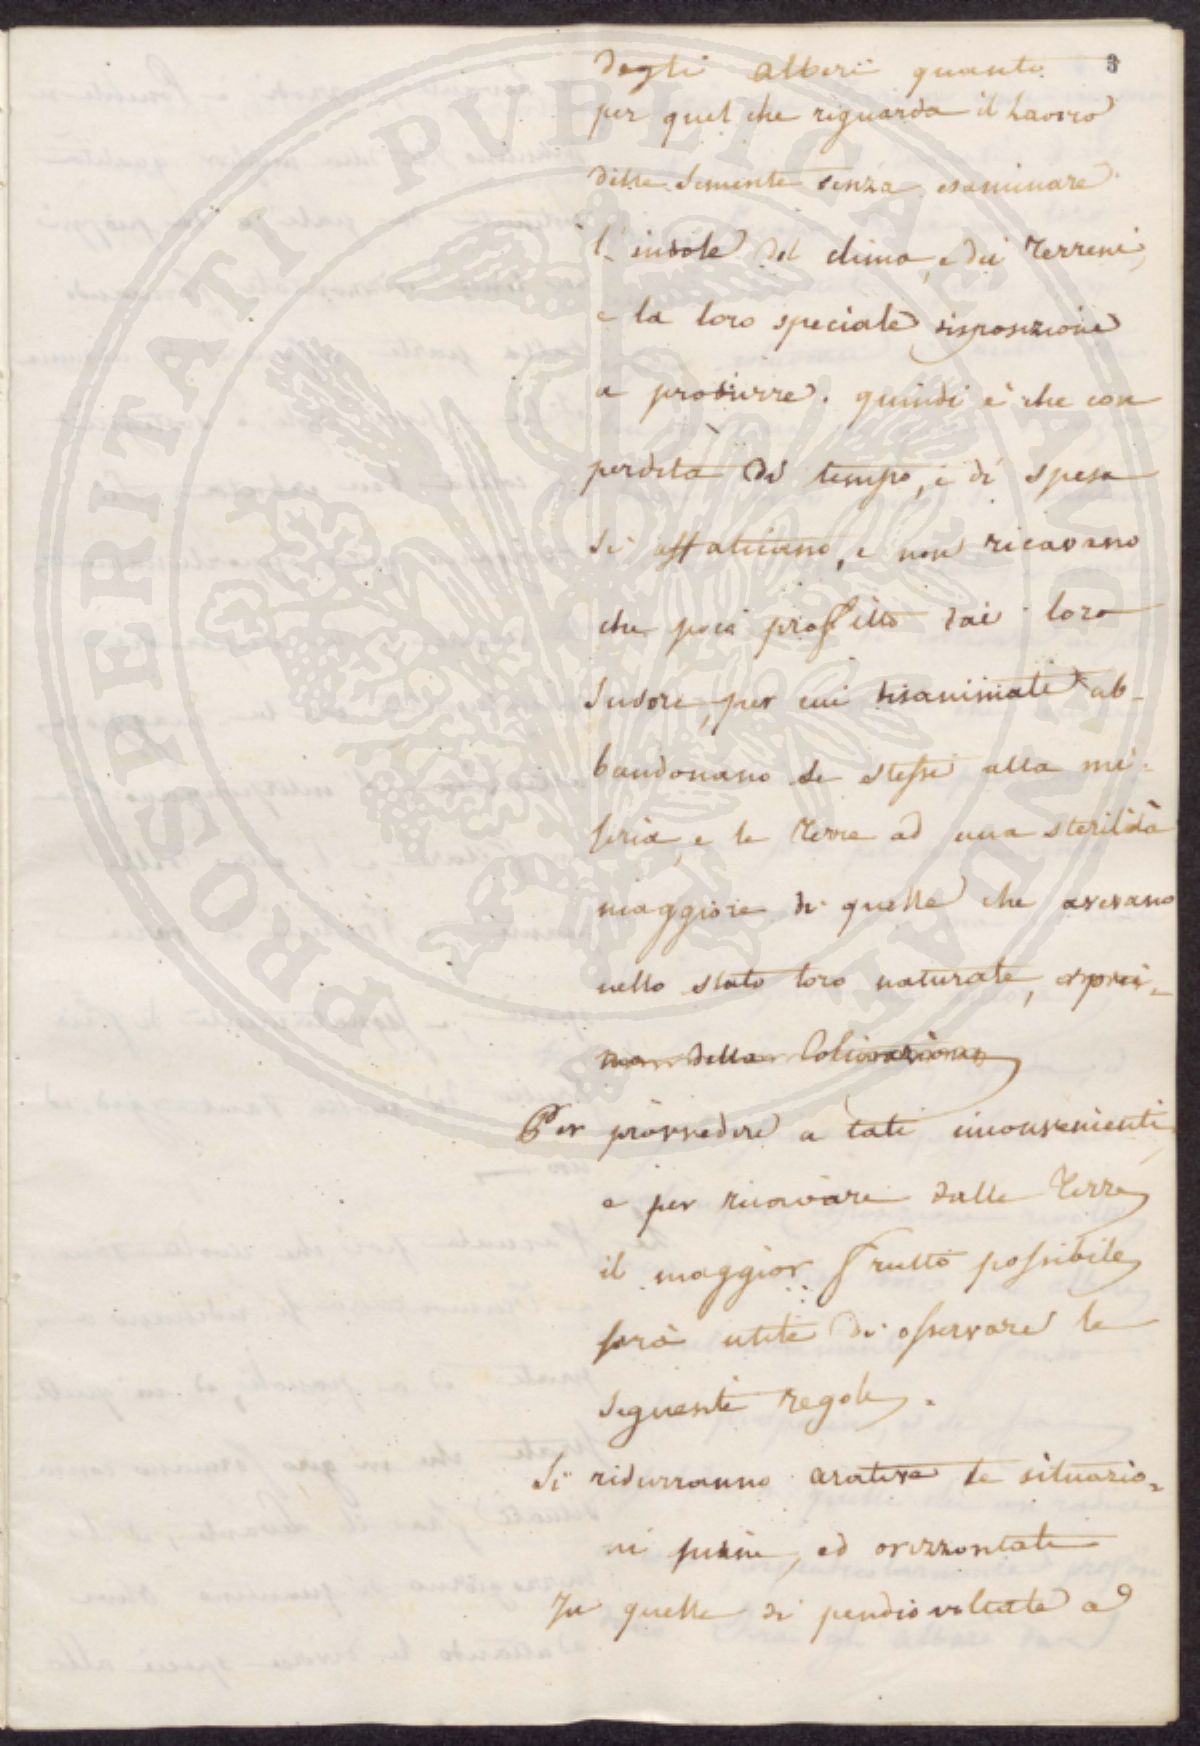 degli alberi quanto 3
per quel che riguarda il Lavoro
delle Semente senza esaminare
l'indole del clima, e dei Terreni,
e la loro speciale disposizione
a produrre. quindi è che con
perdita di tempo, e di spesa
si affaticano, e non ricavano
che poco profitto dai loro
Sudori, per cui disanimate ab-
bandonano se stessi alla mi-
seria, e le Terre ad una sterilità
maggiore di quelle che avevano
nello stato loro naturale, e pri-
ma della Coltivazione
Per provvedere a tali inconvenienti,
e per ricavare dalle Terre
il maggior frutto possibile
sarà utile di osservare le
seguenti regole.
Si ridurranno arative le situazio-
ni piane, ed orizzontali
In quelle di pendio voltate ad
PROSPERITATI PUBLICAE AUGENDAE